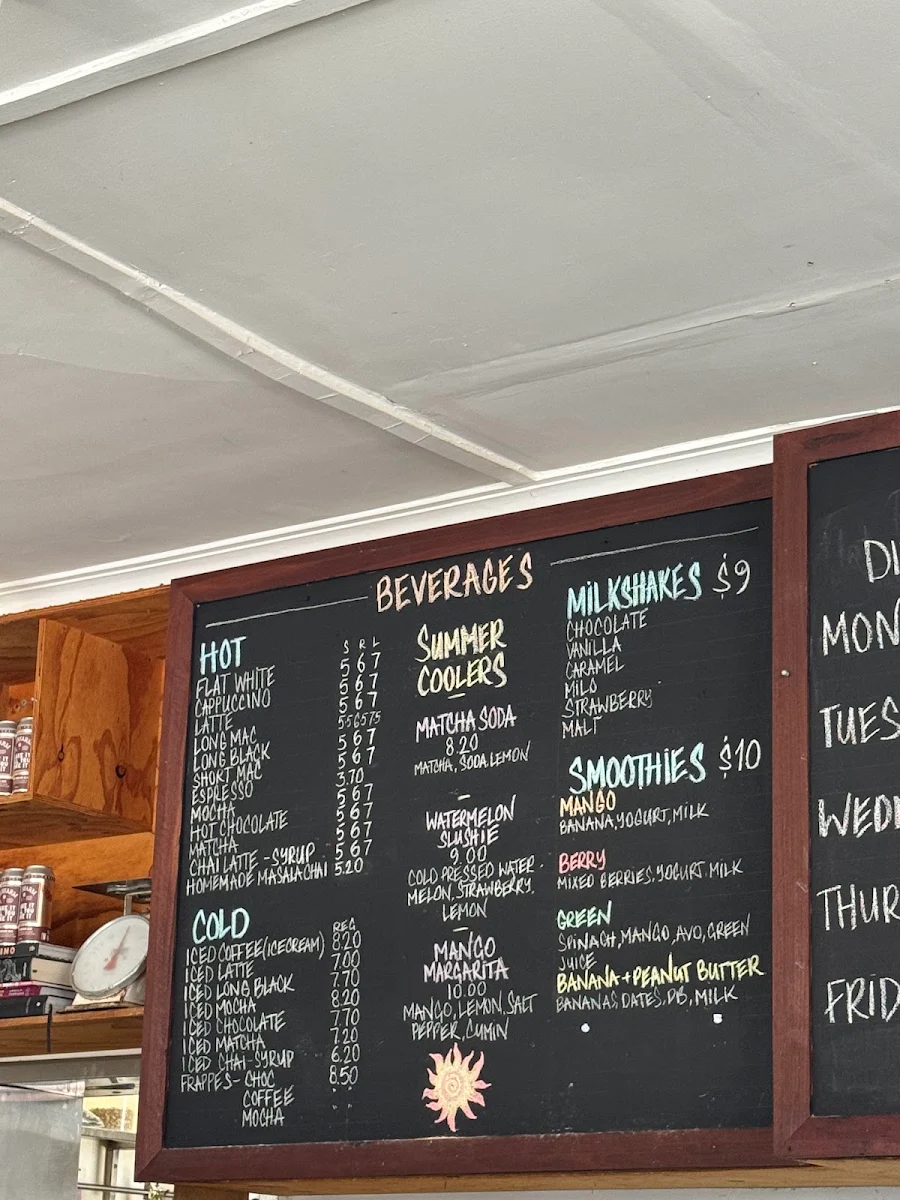 BEVERAGES
HOT
S R L
FLAT WHITE 5 6 7
CAPPUCCINO 5 6 7
LATTE 5 6 7
LONG MAC 5.5 6.5 7.5
LONG BLACK 5 6 7
SHORT MAC 5 6 7
ESPRESSO 3.70
MOCHA 5 6 7
HOT CHOCOLATE 5 6 7
MATCHA 5 6 7
CHAI LATTE - SYRUP 5 6 7
HOMEMADE MASALA CHAI 5.20
COLD
REG
ICED COFFEE (ICECREAM) 8.20
ICED LATTE 7.00
ICED LONG BLACK 7.70
ICED MOCHA 8.20
ICED CHOCOLATE 7.70
ICED MATCHA 7.20
ICED CHAI-SYRUP 6.20
FRAPPES - CHOC 8.50
COFFEE "
MOCHA "
SUMMER
COOLERS
MATCHA SODA
8.20
MATCHA, SODA, LEMON
WATERMELON
SLUSHIE
9.00
COLD PRESSED WATER-
MELON, STRAWBERRY,
LEMON
MANGO
MARGARITA
10.00
MANGO, LEMON, SALT
PEPPER, CUMIN
MILKSHAKES $9
CHOCOLATE
VANILLA
CARAMEL
MILO
STRAWBERRY
MALT
SMOOTHIES $10
MANGO
BANANA, YOGURT, MILK
BERRY
MIXED BERRIES, YOGURT, MILK
GREEN
SPINACH, MANGO, AVO, GREEN
JUICE
BANANA + PEANUT BUTTER
BANANAS, DATES, PB, MILK
DI
MON
TUES
WEDN
THUR
FRID